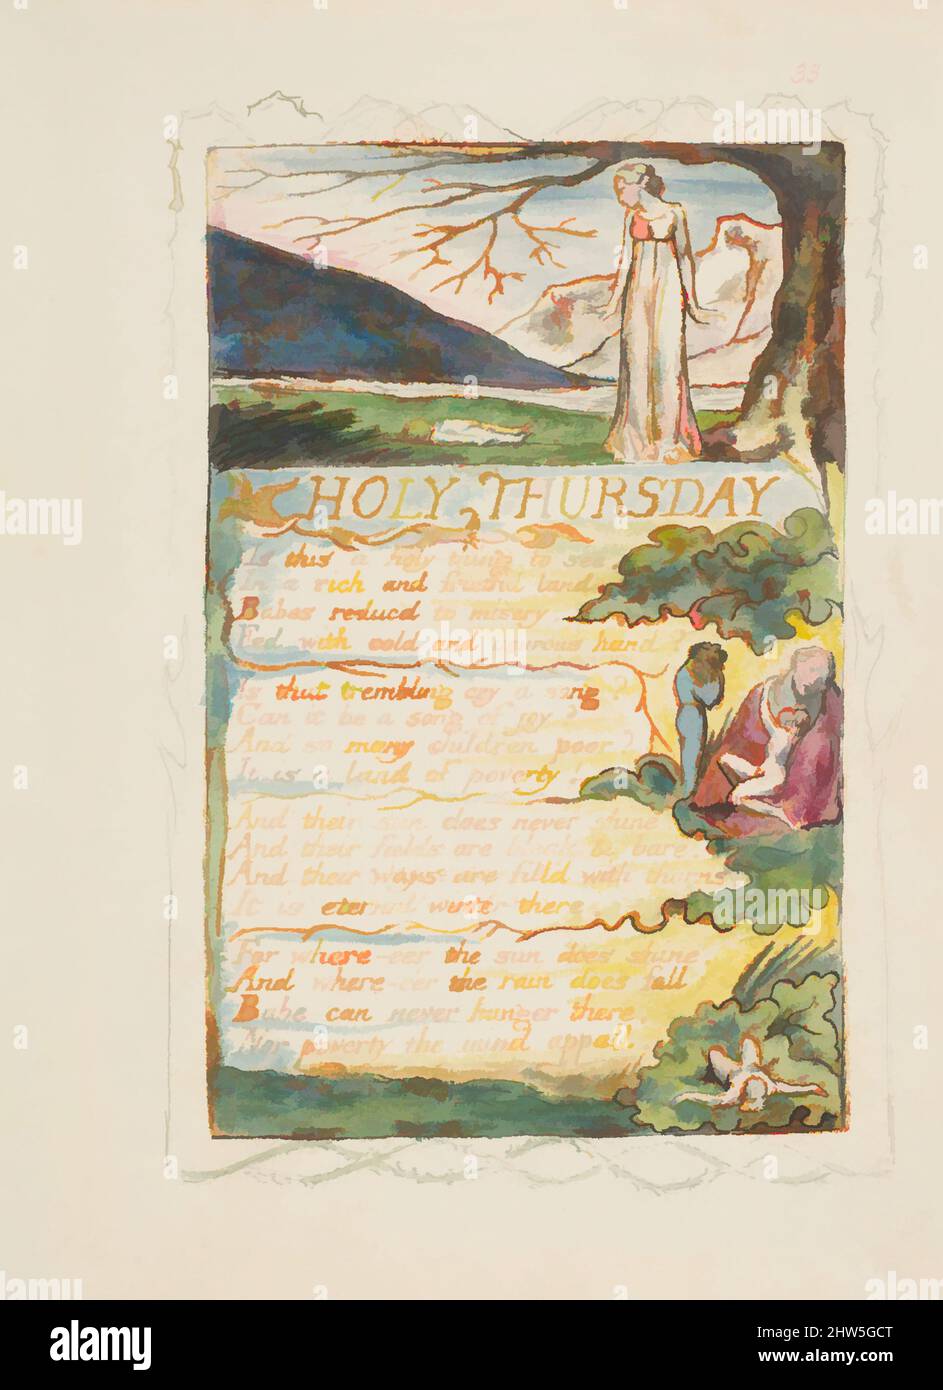 33
HOLY THURSDAY
Is this a holy thing to see
In a rich and fruitful land
Babes reduced to misery
Fed with cold and usurous hand ?
Is that trembling cry a song ?
Can it be a song of joy ?
And so many children poor ?
It is a land of poverty !
And their sun does never shine
And their fields are bleak & bare
And their ways are fill'd with thorns
It is eternal winter there
For where-e'er the sun does shine
And where-e'er the rain does fall
Babe can never hunger there,
Nor poverty the mind appall.
alamy
Image ID: 2HW5GCT
www.alamy.com